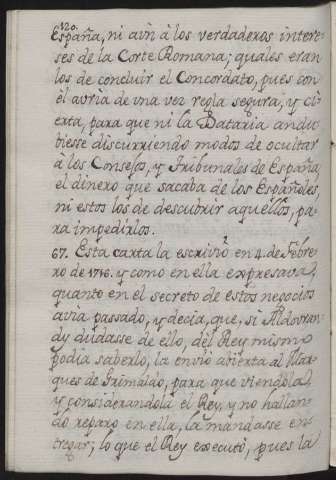 120.
España, ni aun à los verdaderos intere-
ses de la Corte Romana; quales eran
los de concluir el Concordato, pues con
èl avria de una vez regla segura, y ci-
erta, para que ni la Dataria andu-
biesse discurriendo modos de ocultar
à los Consejos, y Tribunales de España
el dinero que sacaba de los Españoles,
ni estos los de descubrir aquellos, pa-
ra impedirlos.
67. Esta carta la escrivió en 4. de Febre-
ro de 1716. y como en ella expresava
quanto en el secreto de estos negocios
avia passado, y decia, que, si Aldovran-
dy dudasse de ello, del Rey mismo
podia saberlo, la envió abierta al Mar-
ques de Grimaldo, para que viendola,
y considerandola el Rey, y no hallan-
do reparo en ella, la mandasse en-
tregar; lo que el Rey executó, pues la